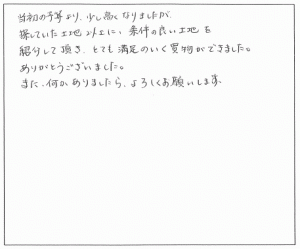 当初の予算より、少し高くなりましたが、
探していた土地以上に、条件の良い土地を
紹介して頂き、とても満足のいく買物ができました。
ありがとうございました。
また、何かありましたら、よろしくお願いします。